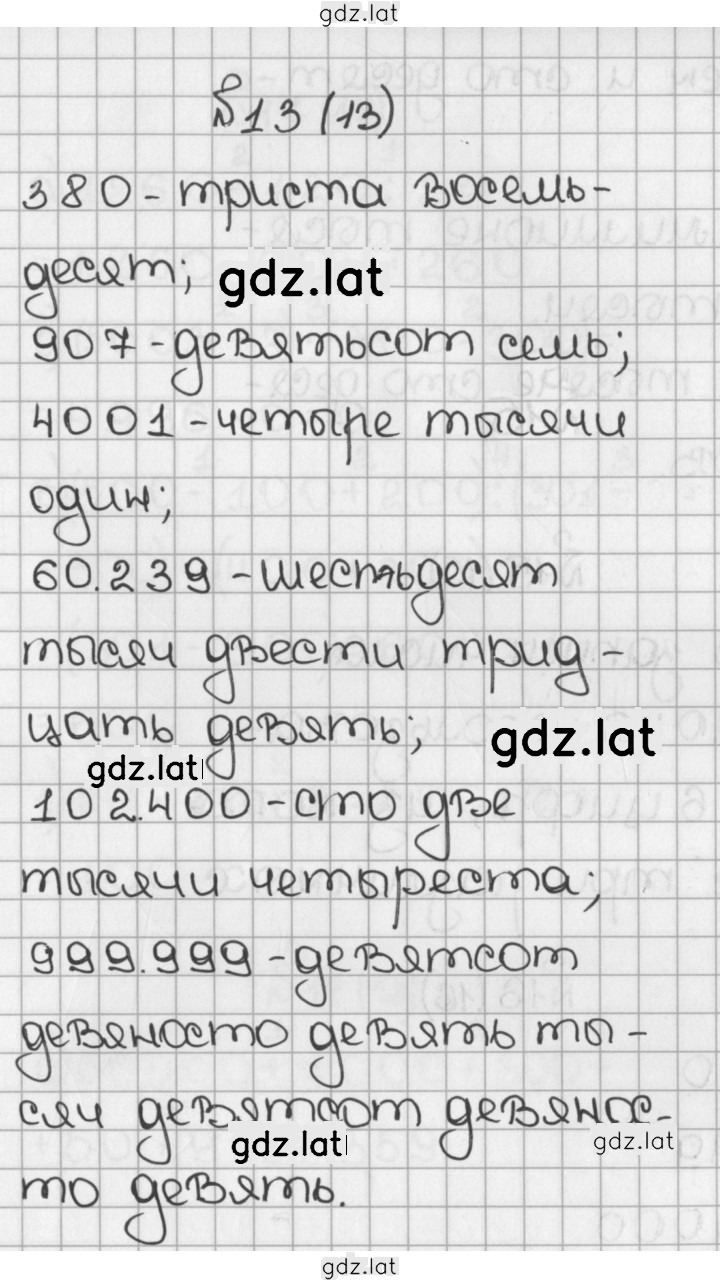 gdz.lat
№13 (13)
380-триста восемь-
десят; gdz.lat
907-девятьсот семь;
4001-четыре тысячи
один;
60.239-шестьдесят
тысяч двести трид-
цать девять; gdz.lat
gdz.lat
102.400-сто две
тысячи четыреста;
999.999-девятсот
девяносто девять ты-
сяч девятсот девянос-
gdz.lat gdz.lat
то девять.
gdz.lat